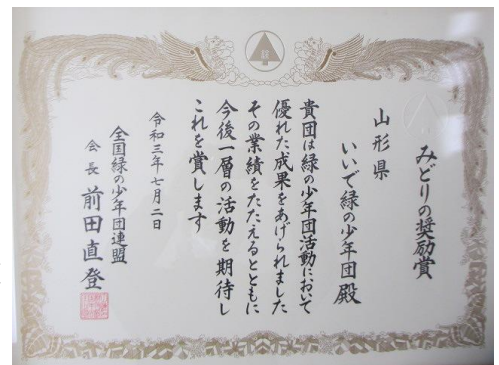 みどりの奨励賞
山形県
いいで緑の少年団殿
貴団は緑の少年団活動において
優れた成果をあげられました
その業績をたたえるとともに
今後一層の活動を期待し
これを賞します
令和三年七月二日
全国緑の少年団連盟
会長 前田直登